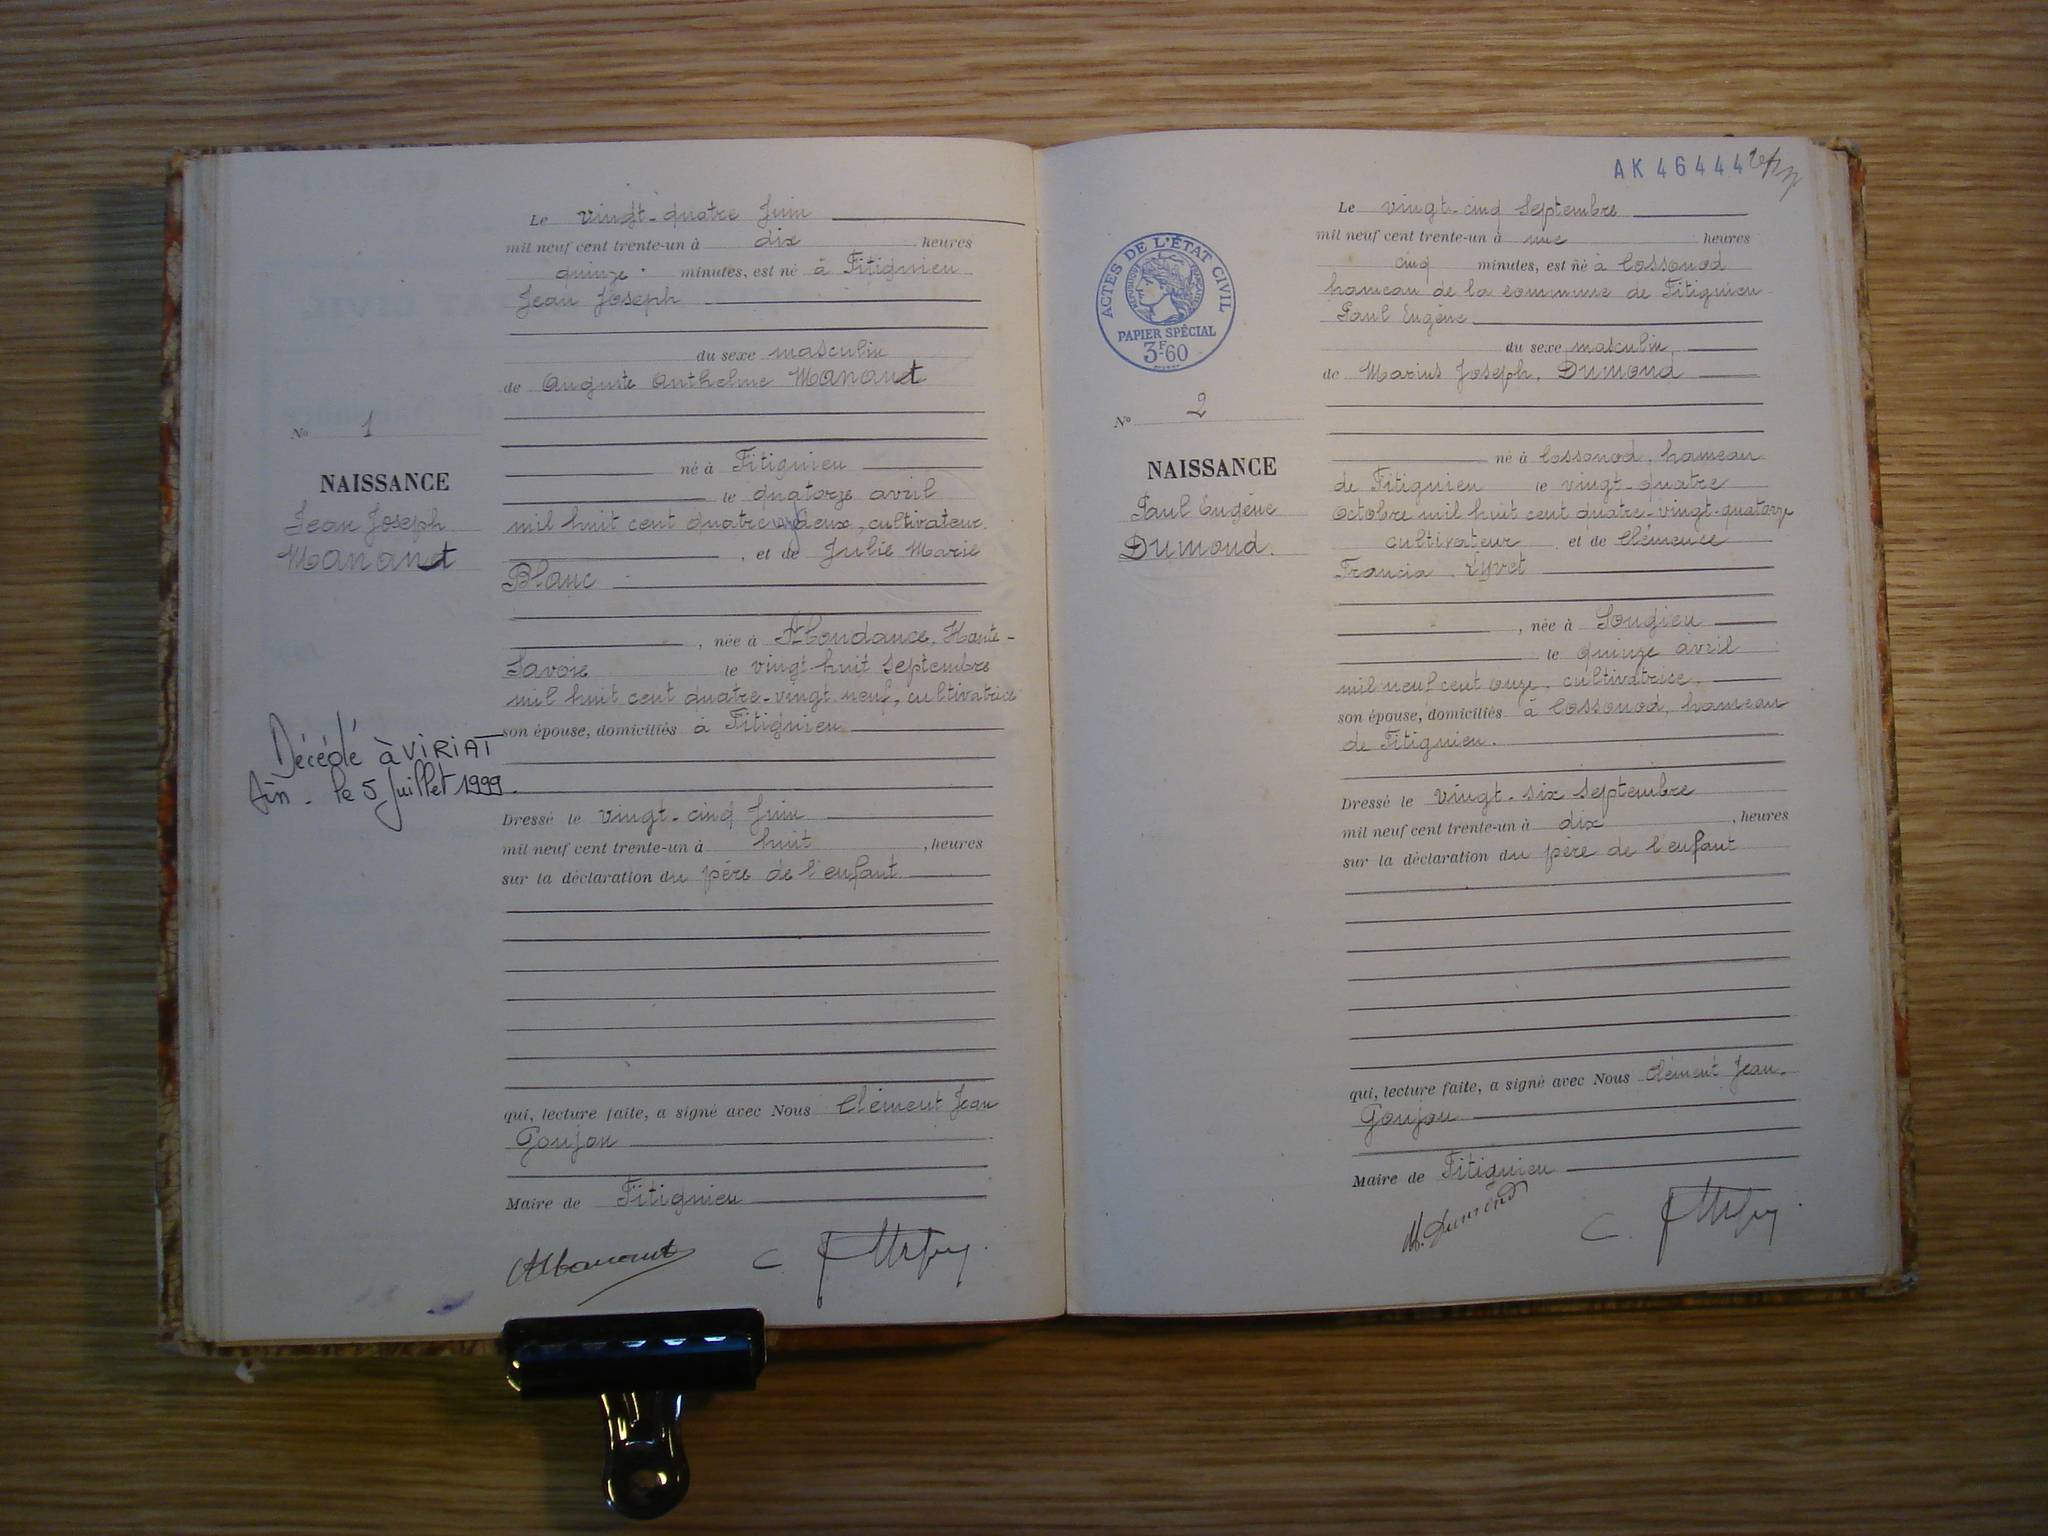 Le vingt-quatre Juin
mil neuf cent trente-un à dix heures
quinze minutes, est né à Fitignieu
Jean Joseph
du sexe masculin
de Auguste Anthelme Manand
N° 1
né à Fitignieu
NAISSANCE
le quatorze avril
Jean Joseph
mil huit cent quatre vgt deux, cultivateur
Manand
, et de Julie Marie
Blanc
, née à Abondance, Haute-
Savoie le vingt huit septembre
mil huit cent quatre-vingt neuf, cultivatrice
son épouse, domiciliés à Fitignieu
Décédé à VIRIAT
Ain. le 5 Juillet 1999.
Dressé le vingt-cinq Juin
mil neuf cent trente-un à huit , heures
sur la déclaration du père de l'enfant
qui, lecture faite, a signé avec Nous Clément Jean
Goujon
Maire de Fitignieu
AK 46444
Le vingt-cinq Septembre
mil neuf cent trente-un à une heures
cinq minutes, est né à Cossonod
hameau de la commune de Fitignieu
Paul Eugène
ACTES DE L'ÉTAT CIVIL
RÉPUBLIQUE FRANÇAISE
PAPIER SPÉCIAL
3F60
du sexe masculin
de Marius Joseph Dumond
N° 2
né à Cossonod, hameau
NAISSANCE
de Fitignieu le vingt-quatre
Paul Eugène
Octobre mil huit cent quatre-vingt-quatorze
Dumond.
cultivateur et de Clémence
Francia Lyvet
, née à Songieu
le quinze avril
mil neuf cent onze, cultivatrice,
son épouse, domiciliés à Cossonod, hameau
de Fitignieu.
Dressé le vingt-six septembre
mil neuf cent trente-un à dix , heures
sur la déclaration du père de l'enfant
qui, lecture faite, a signé avec Nous Clément Jean
Goujon
Maire de Fitignieu
M. Dumond